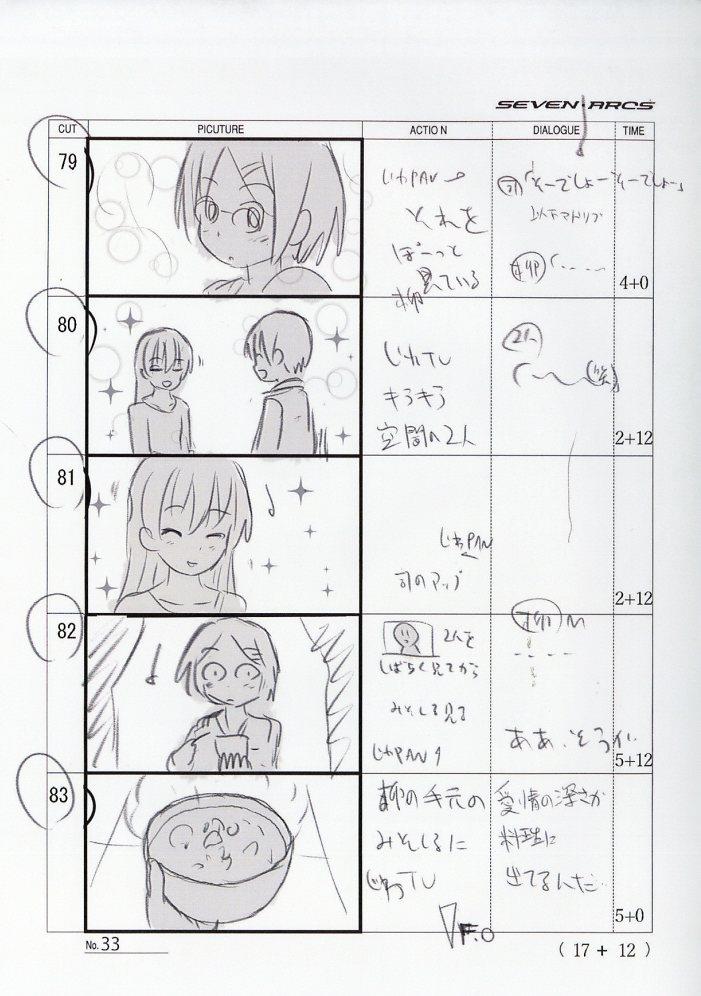 SEVEN·ARCS
CUT PICUTURE ACTION DIALOGUE TIME
79
じわPAN
それを
ぼーっと
見ている
柳
司「そーでしょー そーでしょー」
柳「‥‥‥
4+0
80
じわTU
キラキラ
空間の2人
2人
(笑)
2+12
81
じわPAN
司のアップ
2+12
82
2人を
しばらく見てから
みそしる見る
じわPAN
柳M
ああ、そうか
5+12
83
柳の手元の
みそしるに
じわTU
愛情の深さが
料理に
出てるんだ
F.O
5+0
No.33
( 17 + 12 )